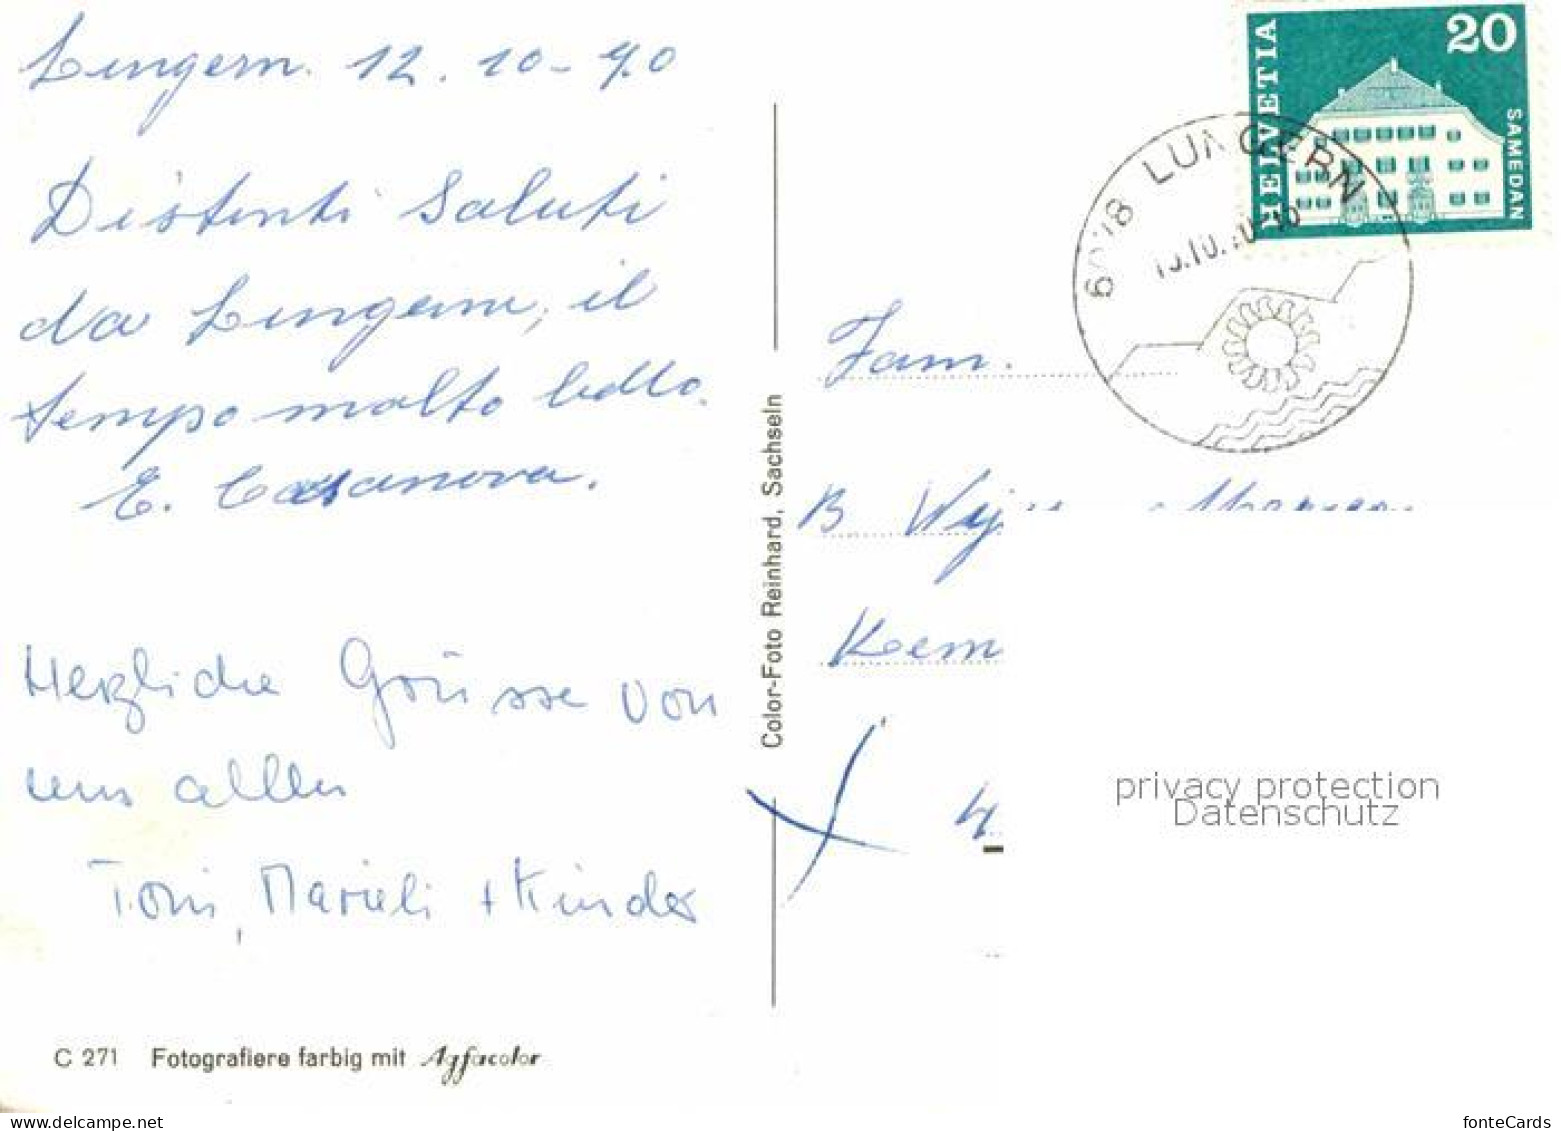 Lungern. 12. 10 - 70
Distinti Saluti
da Lungern, il
tempo molto bello.
E. Casanova.
Herzliche Grüsse von
uns allen
Toni, Marieli + Kinder
C 271 Fotografiere farbig mit Agfacolor
Color-Foto Reinhard, Sachseln
HELVETIA
20
SAMEDAN
6078 LUNGERN
Fam.
B
privacy protection
Datenschutz
www.delcampe.net
fonteCards